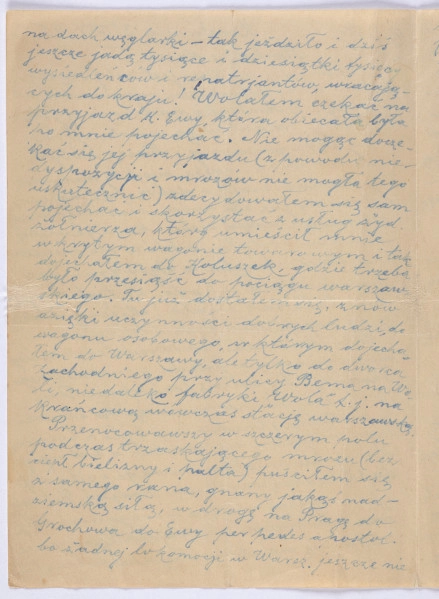 na dach węglarki – tak jeździło i dziś
jeszcze jadą tysiące i dziesiątki tysięcy
wysiedleńców i repatrjantów, wracają-
cych do kraju! Wolałem czekać na
przyjazd K. Ewy, która obiecała była
po mnie pojechać. Nie mogąc docze-
kać się jej przyjazdu (z powodu nie-
dyspozycji i mrozów nie mogła tego
uskutecznić) zdecydowałem się sam
pojechać i skorzystać z usług żyd.
żołnierza, który umieścił mnie
w krytym wagonie towarowym i tak
dojechałem do Koluszek, gdzie trzeba
było przesiąść do pociągu warszaw-
skiego. Tu już dostałem się, znów
dzięki uczynności dobrych ludzi, do
wagonu osobowego, w którym dojecha-
łem do Warszawy, ale tylko do dworca
Zachodniego przy ulicy Bema na Wo-
li, niedaleko fabryki Wola t.j. na
krańcową wówczas stację warszawską.
Przenocowawszy w szczerym polu
podczas trzaskającego mrozu (bez
ciepł. bielizny i palta) puściłem się
z samego rana, gnany jakąś nad-
ziemską siłą, w drogę na Pragę do
Grochowa do Ewy per pedes apostol.
bo żadnej lokomocji w Warsz. jeszcze nie